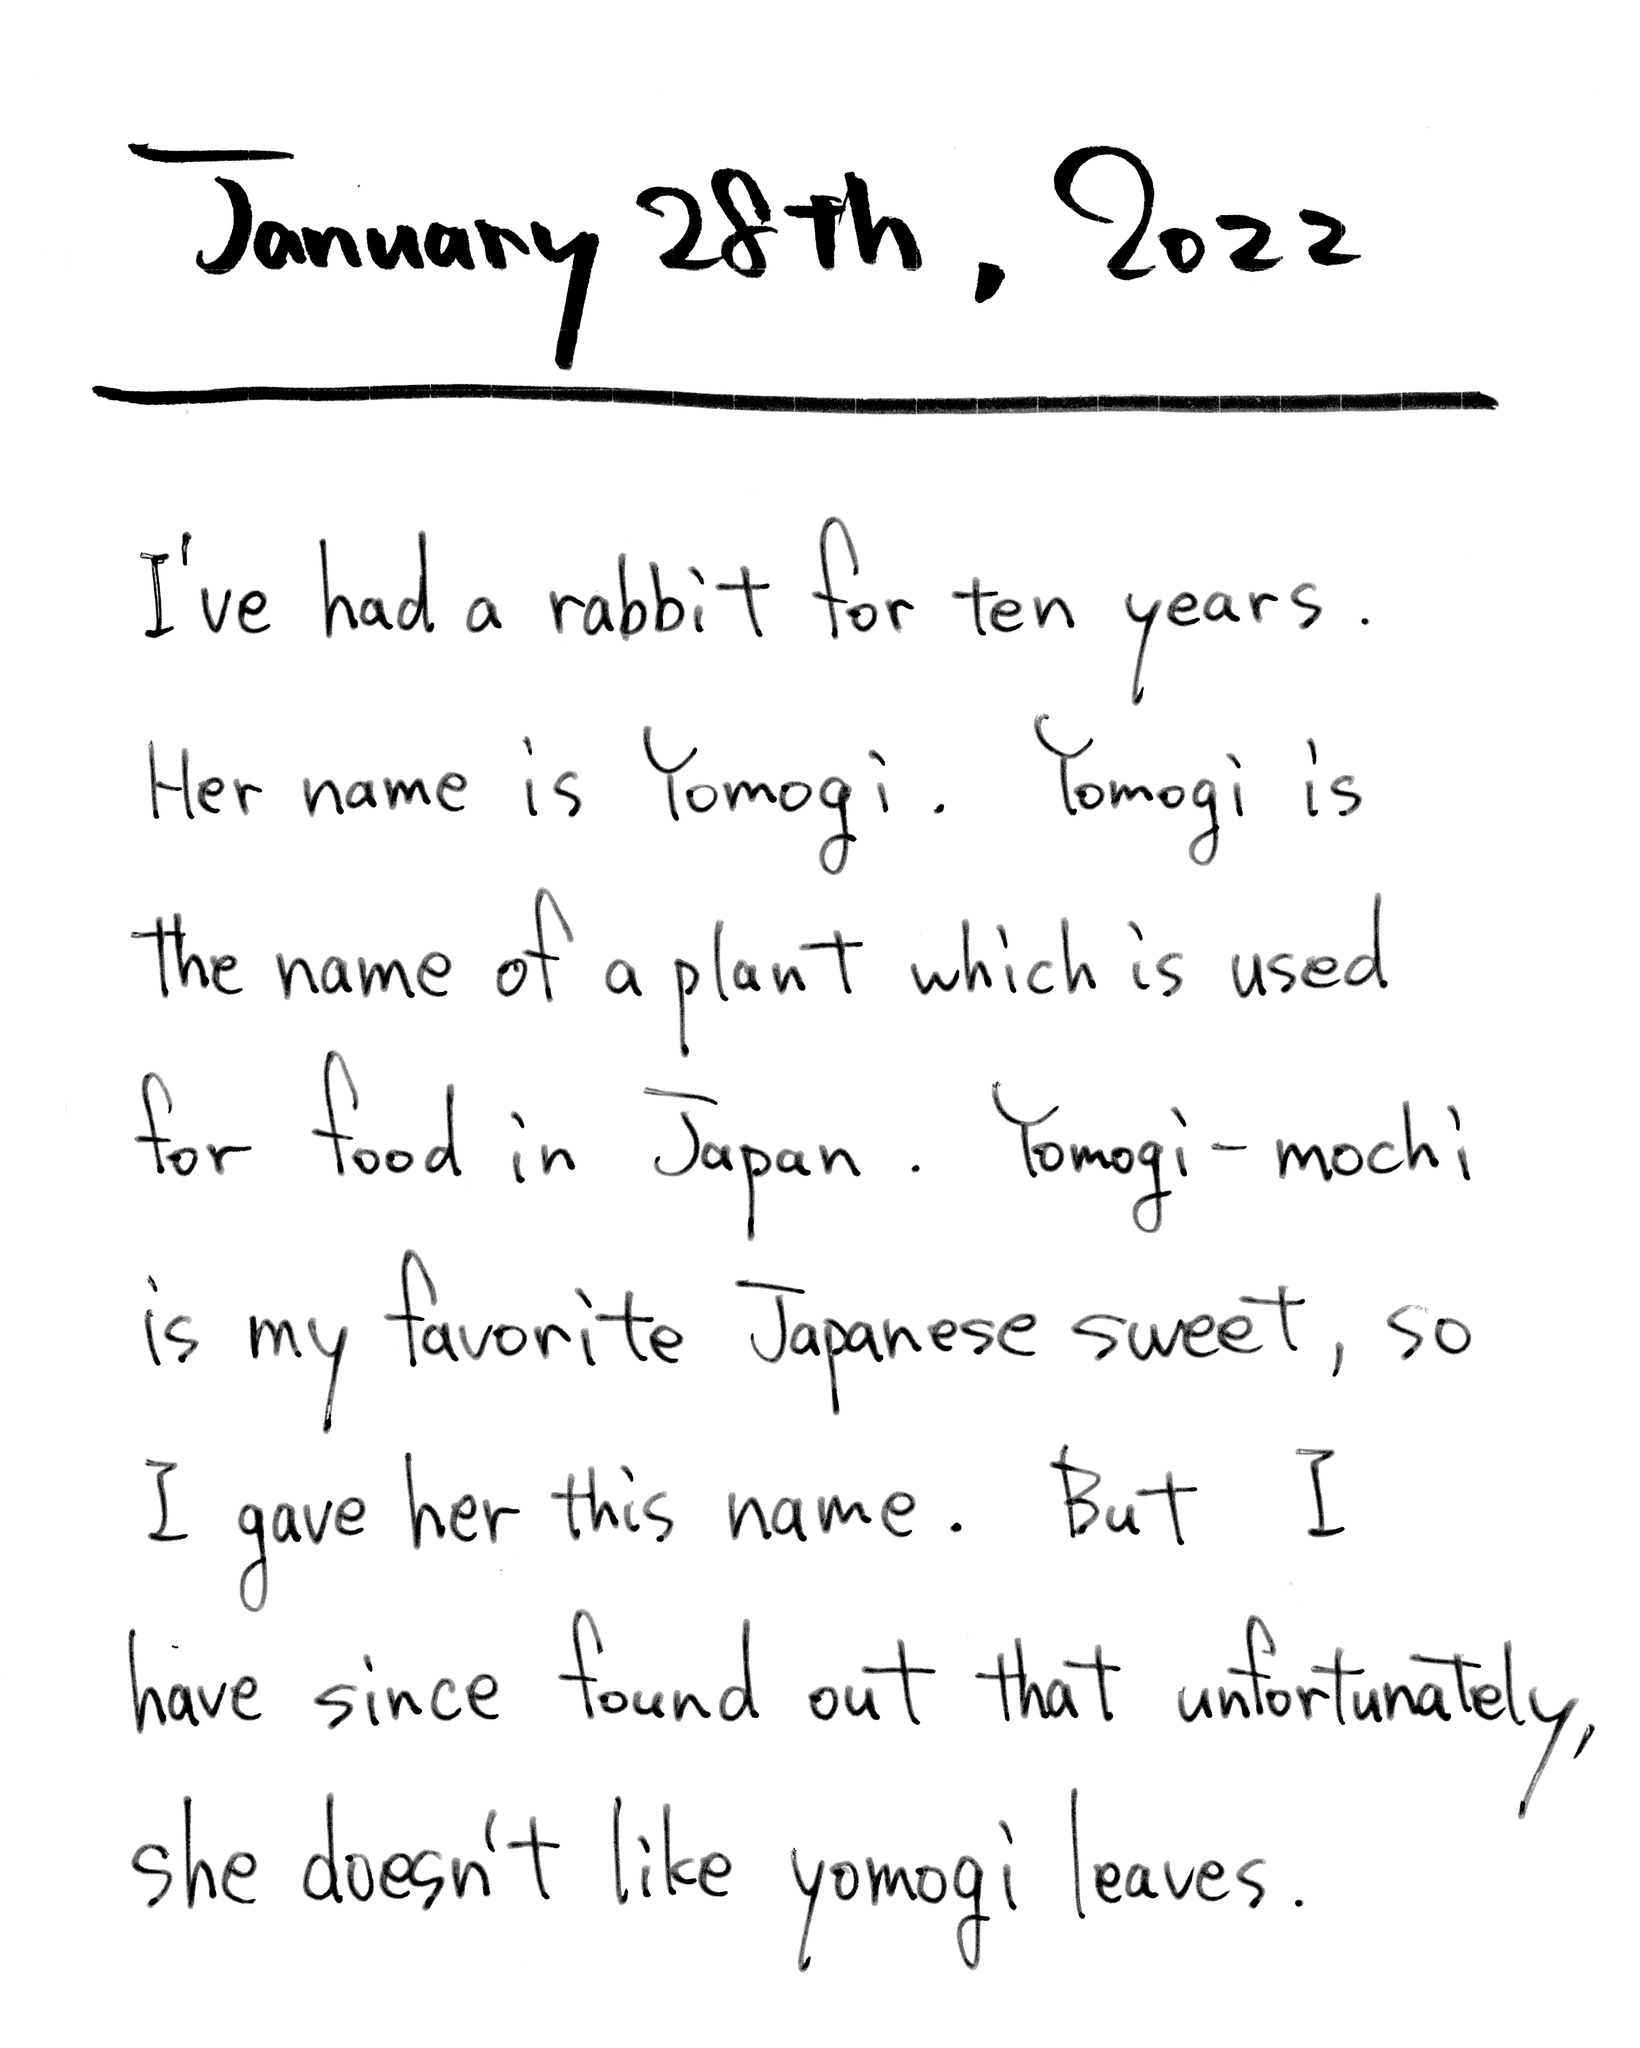 January 28th, 2022
I've had a rabbit for ten years.
Her name is Yomogi. Yomogi is
the name of a plant which is used
for food in Japan. Yomogi-mochi
is my favorite Japanese sweet, so
I gave her this name. But I
have since found out that unfortunately,
she doesn't like yomogi leaves.